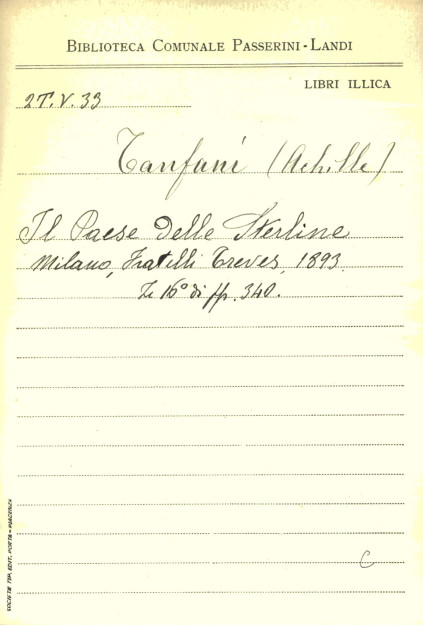 BIBLIOTECA COMUNALE PASSERINI-LANDI
LIBRI ILLICA
2T.V.33
Tanfani (Achille)
Il Paese delle Sterline
Milano, Fratelli Treves, 1893.
In 16° di pp. 340.
C
SOCIETÀ TIP. EDIT. PORTA - PIACENZA